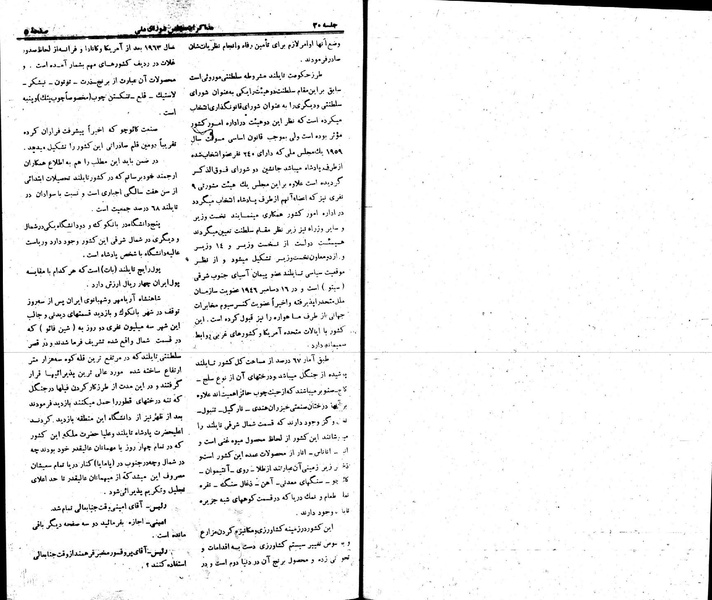 جلسه ۳۰
صفحهٔ ۵
وضع آنها اوامر لازم برای تأمین رفاه و انجام نظریاتشان
صادر فرمودند
طرز حکومت تایلند مشروطه سلطنتی موروثی است
سابق بر این مقام سلطنت دو هیئت را یکی به عنوان شورای
سلطنتی و دیگری را به عنوان شورای قانونگذاری انتخاب
میکرده است که نظر این دو هیئت در اداره امور کشور
مؤثر بوده است ولی بموجب قانون اساسی سال
۱۹۵۹ یک مجلس ملی که دارای ۲۴۰ نفر عضو انتخاب شده
از طرف پادشاه میباشد جانشین دو شورای فوق الذکر
گردیده است علاوه بر این مجلس یک هیئت مشورتی ۹
نفری نیز که اعضاء آنهم از طرف پادشاه انتخاب میگردد
در اداره امور کشور همکاری مینمایند نخست وزیر
و سایر وزراء نیز زیر نظر مقام سلطنت تعیین میگردند
هیئت دولت از نخست وزیر و ۱۴ وزیر
و از دو معاون نخست وزیر تشکیل میشود و از نظر
موقعیت سیاسی تایلند عضو پیمان آسیای جنوب شرقی
( سیتو ) است و در ۱۶ دسامبر ۱۹۴۶ عضویت سازمان
ملل متحد را پذیرفته و اخیراً عضویت کنسرسیوم مخابرات
جهانی از طرف ماهواره را نیز قبول کرده است . این
کشور با ایالات متحده آمریکا و کشورهای غربی روابط
صمیمانه دارد .
طبق آمار ۶۷ درصد از مساحت کل کشور تایلند
پوشیده از جنگل میباشد و درختهای آن از نوع ساج -
کاج صنوبر میباشند که از حیث چوب حائز اهمیت اند علاوه
بر آنها درختان صنعتی خیزران هندی - نارگیل - تنبول -
وگز وجود دارند که قسمت شمال شرقی تایلند را
میپوشانند این کشور از لحاظ محصول میوه غنی است و
آناناس - انار از محصولات عمده این کشور است و
زیر زمینی آن عبارتند از طلا - روی - آنتیموان -
سنگهای معدنی - آهن - ذغال سنگ - نقره
طعام و نمک دریا که در قسمت کوههای شبه جزیره
وجود دارند .
این کشور در زمینه کشاورزی و مکانیزه کردن مزارع
تغییر سیستم کشاورزی دست به اقدامات و
زده و محصول برنج آن در دنیا دوم است و در
سال ۱۹۶۳ بعد از آمریکا و کانادا و فرانسه از لحاظ صدور
غلات در ردیف کشورهای مهم بشمار آمده است و
محصولات آن عبارت از برنج - ذرت - توتون - نیشکر -
لاستیک - قلع - تنگستن چوب (مخصوصاً چوب تیک) و پنبه
است .
صنعت کائوچو که اخیراً پیشرفت فراوان کرده
تقریباً دومین قلم صادراتی این کشور را تشکیل میدهد .
در ضمن باید این مطلب را هم به اطلاع همکاران
ارجمند خود برسانم که در کشور تایلند تحصیلات ابتدائی
از سن هفت سالگی اجباری است و نسبت باسوادان در
تایلند ۶۸ درصد جمعیت است .
پنج دانشگاه در بانکوک و دو دانشگاه یکی در شمال
و دیگری در شمال شرقی این کشور وجود دارد و ریاست
عالیه دانشگاه با شخص پادشاه است .
پول رایج تایلند (بات) است که هر کدام با مقایسه
پول ایران چهار ریال ارزش دارد .
شاهنشاه آریامهر و شهبانوی ایران پس از سه روز
توقف در شهر بانکوک و بازدید قسمتهای دیدنی و جالب
این شهر سه میلیون نفری دو روز به ( شین مائو ) که
در قسمت شمال واقع شده تشریف فرما شدند و در قصر
سلطنتی تایلند که در مرتفع ترین قله کوه سه هزار متر
ارتفاع ساخته شده مورد عالی ترین پذیرائیها قرار
گرفتند و در این مدت از طرز کار کردن فیلها در جنگل
که تنه درختهای قطور را حمل میکنند بازدید فرمودند
بعد از ظهر نیز از دانشگاه این منطقه بازدید کردند
اعلیحضرت پادشاه تایلند و علیا حضرت ملکه این کشور
که در تمام چهار روز با مهمانان عالیقدر خود بودند چه
در شمال و چه در جنوب در (پاتایا) کنار دریا تمام سعیشان
مصروف این میشد که از میهمانان عالیقدر تا حد اعلای
تجلیل و تکریم پذیرائی شود .
رئیس - آقای امینی وقت جنابعالی تمام شد .
امینی - اجازه بفرمائید دو سه صفحه دیگر باقی
مانده است .
رئیس - آقای پروفسور مخبر فرهمند از وقت جنابعالی
استفاده کنند ؟ .